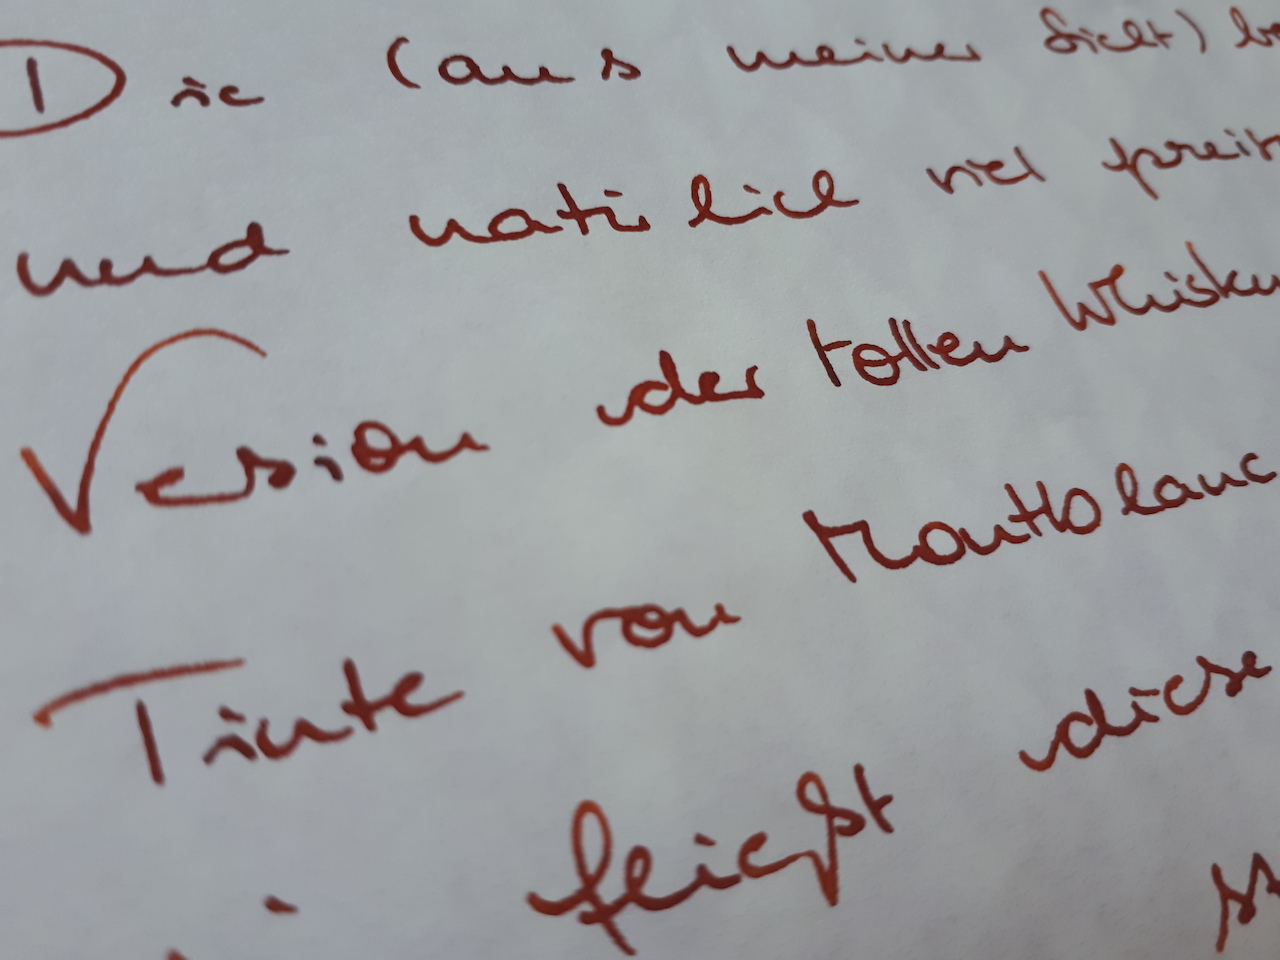 Die (aus meiner Sicht) be
und natürlich viel preis
Version der tollen Whisky
Tinte von Montblanc
fließt diese